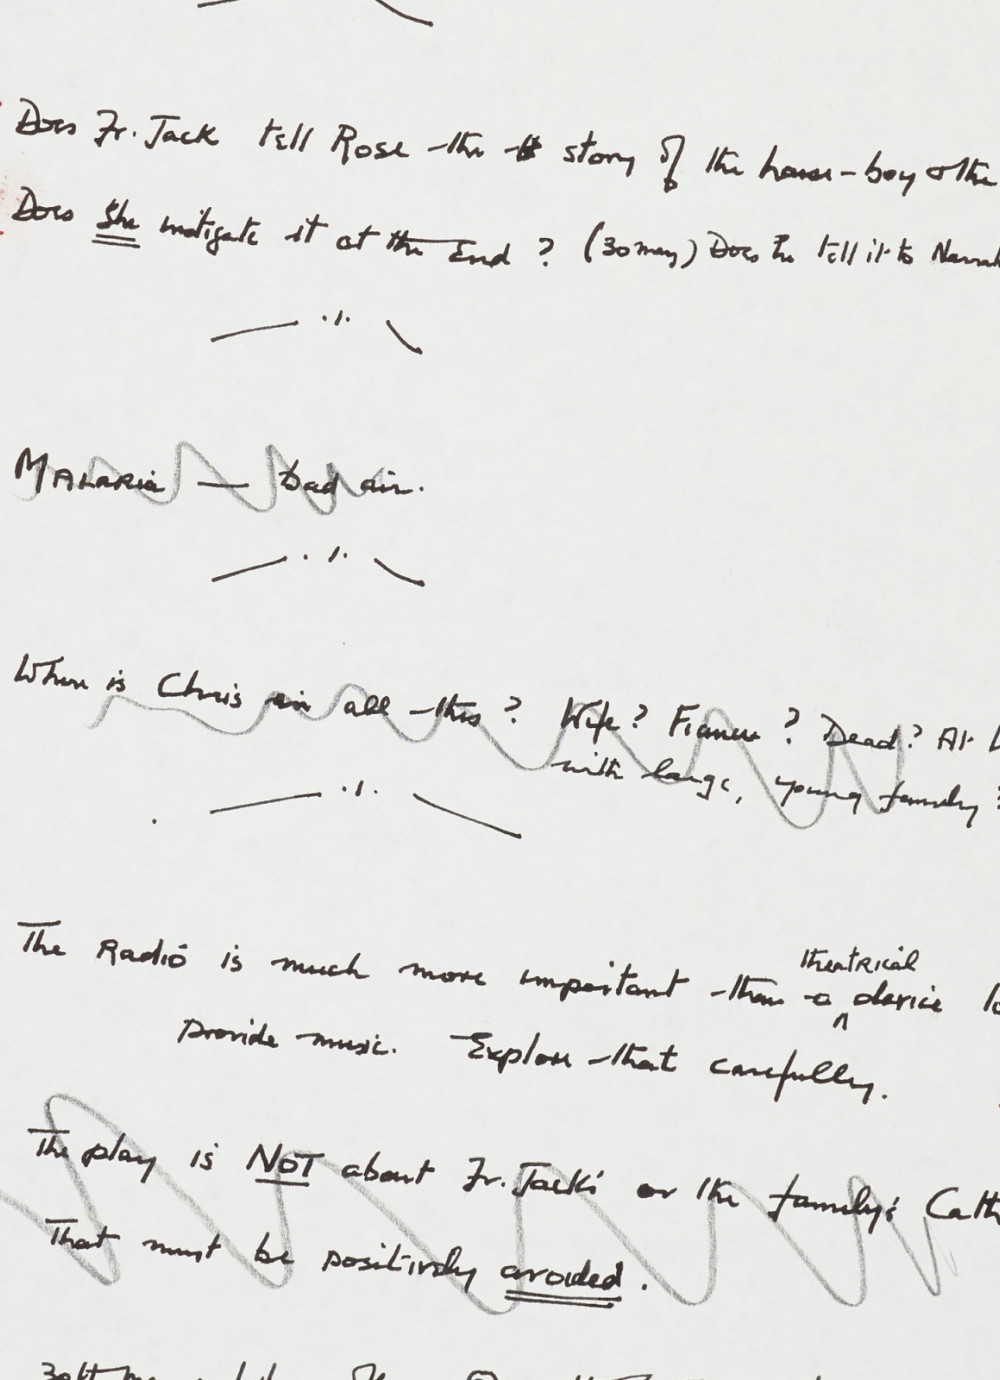 Does Fr. Jack tell Rose the story of the house-boy + the
Does She instigate it at the End? (30 may) Does he tell it to
MALARIA — bad air.
Where is Chris in all this? Wife? Fiancee? Dead? At
with large, young family?
The Radio is much more important than a theatrical device to
provide music. Explore that carefully.
The play is NOT about Fr. Jack's or the family's
That must be positively avoided.